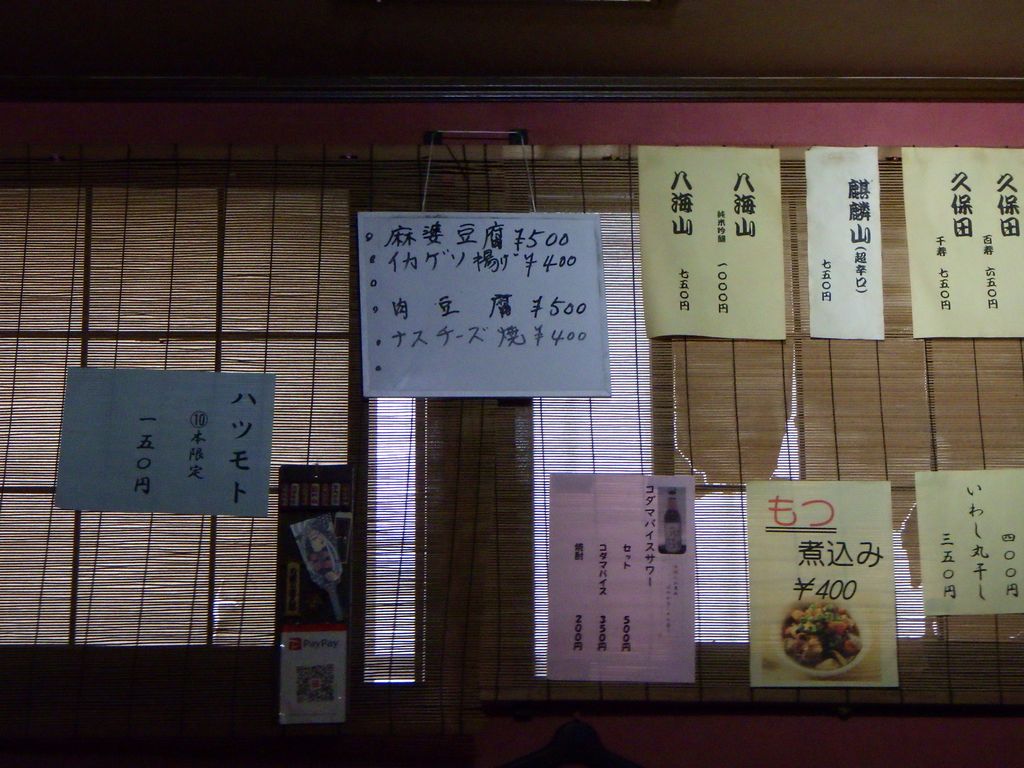 麻婆豆腐 ¥500
イカゲソ揚げ ¥400
肉豆腐 ¥500
ナスチーズ焼 ¥400
八海山
純米吟醸 一〇〇〇円
八海山
七五〇円
麒麟山(超辛口)
七五〇円
久保田
百寿 六五〇円
久保田
千寿 七五〇円
ハツモト
⑩本限定
一五〇円
PayPay
コダマバイスサワー
セット 500円
コダマバイス 350円
焼酎 200円
もつ
煮込み
¥400
いわし丸干し
四〇〇円
三五〇円